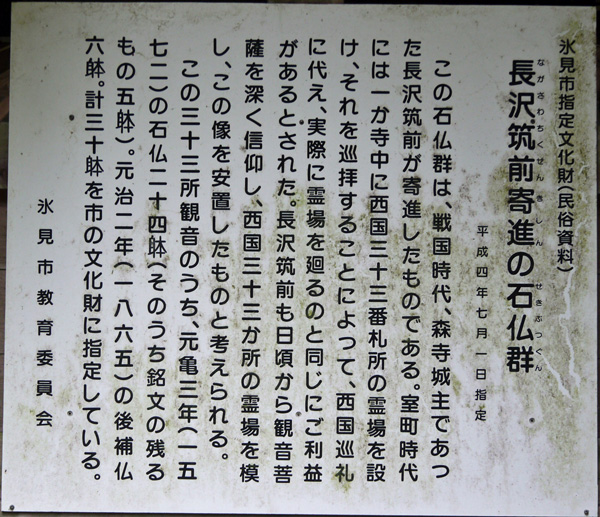 氷見市指定文化財(民俗資料)
長沢筑前寄進の石仏群
ながさわちくぜんきしん せきぶつぐん
平成四年七月一日指定
この石仏群は、戦国時代、森寺城主であつ
た長沢筑前が寄進したものである。室町時代
には一か寺中に西国三十三番札所の霊場を設
け、それを巡拝することによつて、西国巡礼
に代え、実際に霊場を廻るのと同じにご利益
があるとされた。長沢筑前も日頃から観音菩
薩を深く信仰し、西国三十三か所の霊場を模
し、この像を安置したものと考えられる。
この三十三所観音のうち、元亀三年(一五
七二)の石仏二十四躰(そのうち銘文の残る
もの五躰)。元治二年(一八六五)の後補仏
六躰。計三十躰を市の文化財に指定している。
氷見市教育委員会